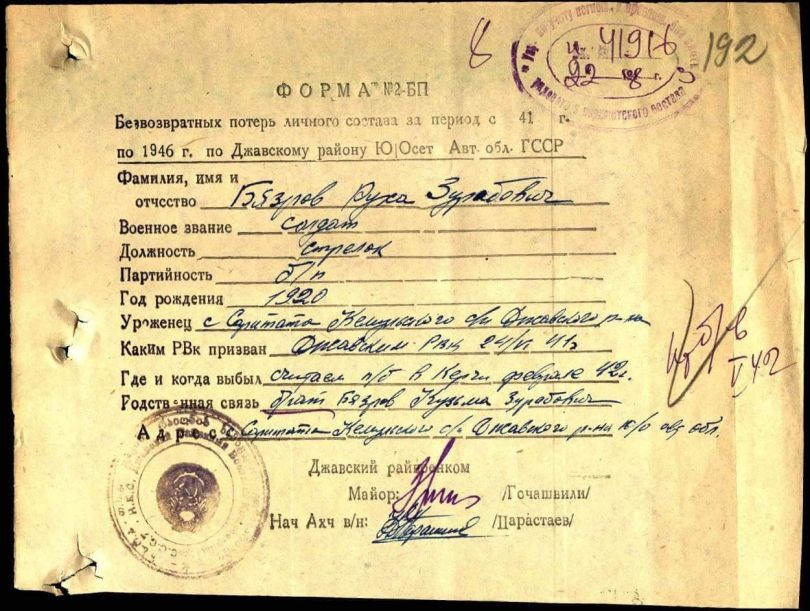 8
192
41916
22 8
ФОРМА №2-БП
Безвозвратных потерь личного состава за период с 41 г.
по 1946 г. по Джавскому району Ю|Осет Авт. обл. ГССР
Фамилия, имя и
отчсство Бязров Руха Зурабович
Военное звание солдат
Должность стрелок
Партийность б/п
Год рождения 1920
Уроженец с Сритата Келунского с/с Джавского р-на
Каким РВк призван Джавским РВК 24/VI 41г
Где и когда выбыл считаем п/б в Керчи феврале 42г.
Родственная связь брат Бязров Кузьма Зурабович
Адрес: с Сритата Келунского с/с Джавского р-на Ю/О авт обл.
Джавский райвоенком
Майор: /Гочашвили/
Нач Ахч в/н: /Царастаев/